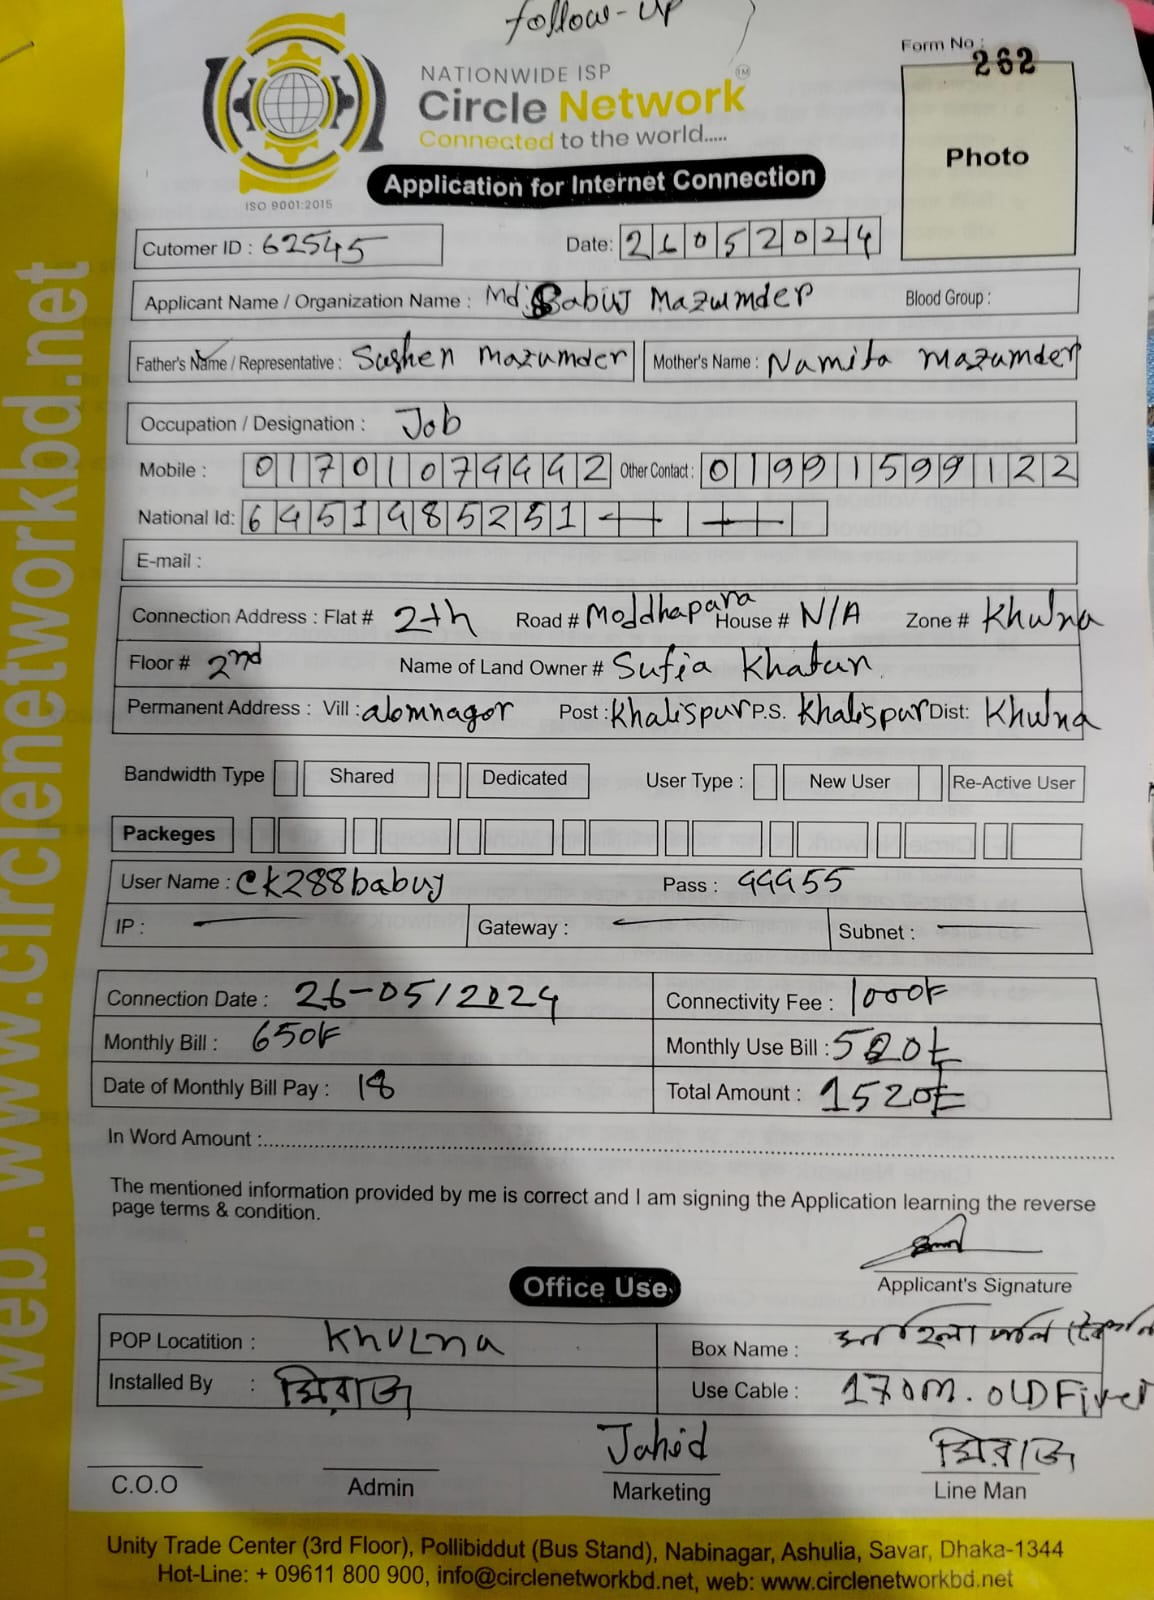 follow-up
NATIONWIDE ISP
Circle Network
TM
Connected to the world.....
ISO 9001:2015
Form No : 262
Photo
Application for Internet Connection
Cutomer ID : 62545 Date: 26052024
Applicant Name / Organization Name : Md: Babuj Mazumder Blood Group :
Father's Name / Representative : Sushen Mazumder Mother's Name : Namita Mazumder
Occupation / Designation : Job
Mobile : 01701074442 Other Contact : 01991599122
National Id: 6451485251
E-mail :
Connection Address : Flat # 2th Road # Moddhapara House # N/A Zone # Khulna
Floor # 2nd Name of Land Owner # Sufia Khatun
Permanent Address : Vill : alomnagor Post : Khalispur P.S. Khalispur Dist: Khulna
Bandwidth Type Shared Dedicated User Type : New User Re-Active User
Packeges
User Name : CK288babuj Pass : 44455
IP : Gateway : Subnet :
Connection Date : 26-05/2024 Connectivity Fee : 1000৳
Monthly Bill : 650৳ Monthly Use Bill : 520৳
Date of Monthly Bill Pay : 18 Total Amount : 1520৳
In Word Amount :
The mentioned information provided by me is correct and I am signing the Application learning the reverse
page terms & condition.
Applicant's Signature
Office Use
POP Locatition : KhULna Box Name :
Installed By : মিরাজ Use Cable : 170m. OLD Fiver
Jahid মিরাজ
C.O.O Admin Marketing Line Man
Unity Trade Center (3rd Floor), Pollibiddut (Bus Stand), Nabinagar, Ashulia, Savar, Dhaka-1344
Hot-Line: + 09611 800 900, info@circlenetworkbd.net, web: www.circlenetworkbd.net
web. www.circlenetworkbd.net